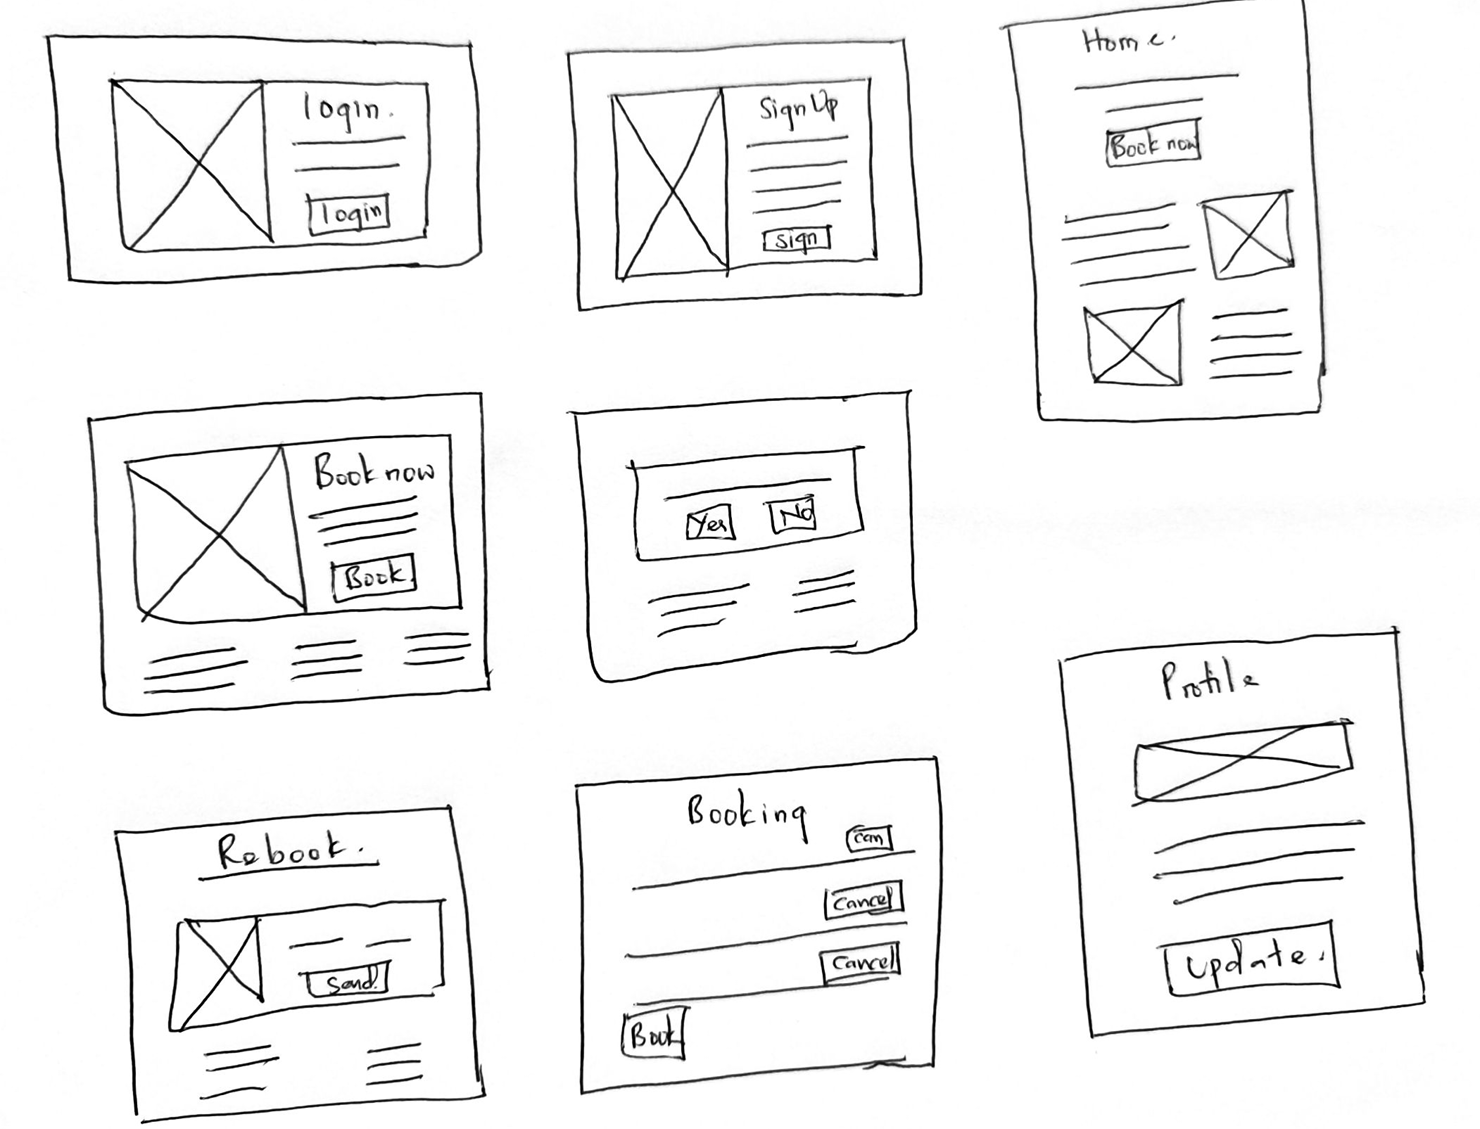 login.
login
Sign Up
sign
Home.
Book now
Book now
Book.
Yes
No
Profile
Update.
Rebook.
Send.
Booking
can
Cancel
Cancel
Book